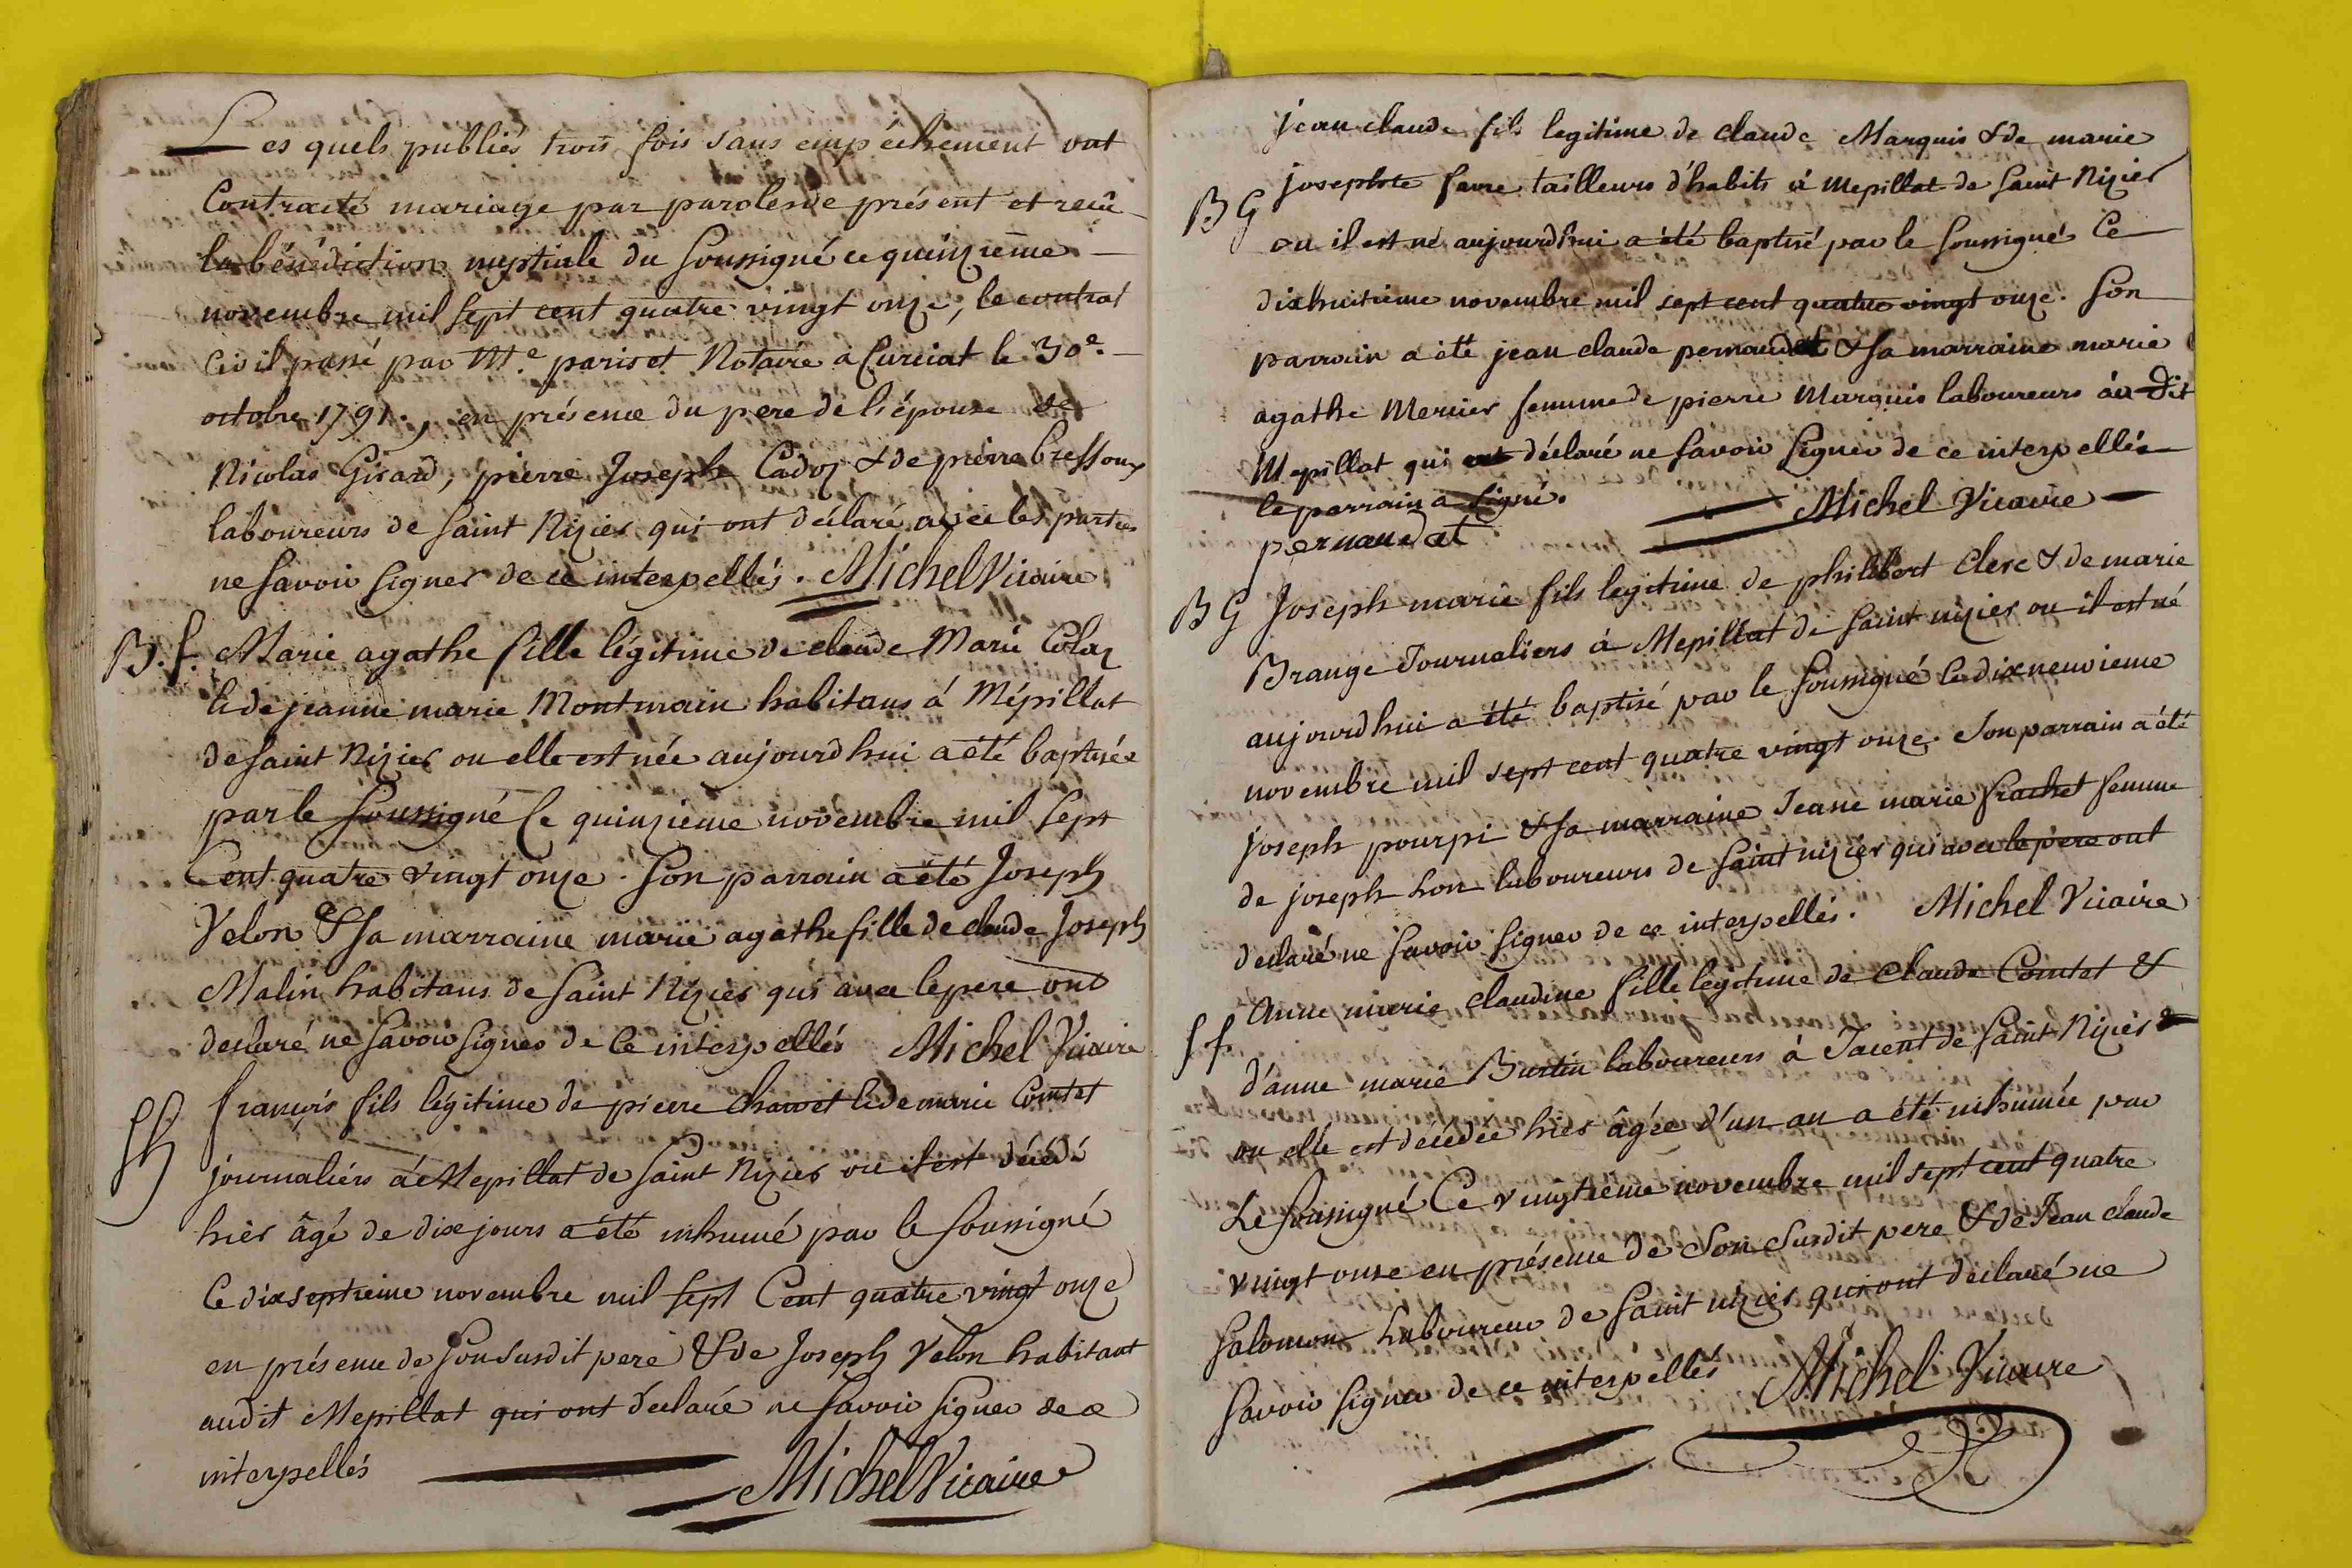 Les quels publiés trois fois sans empêchement ont
Contracté mariage par parolesde présent et recû
la bénédiction nuptiale du soussigné ce quinzieme
novembre mil sept cent quatre vingt onze, le contrat
Civil passé par Me. pariset Notaire a Curciat le 30e.
octobre 1791., en présence du pere de l'épouse de
Nicolas Girard, pierre Joseph Cadoz & de pierre bressoux
laboureurs de saint Nizier qui ont déclaré avec les parties
ne savoir signer de ce interpellés. Michel Vicaire
B. f. Marie agathe fille légitime de claude Marie Colaz
& de jeanne marie Montmain habitans á Mépillat
de saint Nizier ou elle est née aujourdhui a été baptisée
par le soussigné Ce quinzieme novembre mil sept
Cent quatre vingt onze. Son parrain a été Joseph
Velon & sa marraine marie agathe fille de claude Joseph
Malin habitans de saint Nizier qui avec le pere ont
declaré ne savoir signer de Ce interpellés Michel Vicaire
françois fils légitime de pierre Chavet & de marie Comtet
journaliers á Mepillat de saint Nizier ou il est décédé
hier âgé de dix jours a été inhumé par le soussigné
Ce dixseptieme novembre mil sept Cent quatre vingt onze
en présence de son susdit pere & de Joseph Velon habitant
audit Mepillat qui ont déclaré ne savoir signer de ce
interpellés
Michel Vicaire
jean claude fils legitime de claude Marquis & de marie
BG josephte favre tailleurs d'habits á Mepillat de saint Nizier
ou il est né aujourdhui a été baptisé par le soussigné Ce
dixhuitieme novembre mil sept cent quatre vingt onze. Son
parrain a été jean claude pernaudat & sa marraine marie
agathe Mercier femme de pierre Marquis laboureurs áu dit
Mepillat qui ont déclaré ne savoir signer de ce interpellés
le parrain a signé. Michel Vicaire
pernaudat
BG Joseph marie fils legitime de philibert Clerc & de marie
Brange Journaliers á Mepillat de saint nizier ou il est né
aujourdhui a été baptisé par le soussigné Ce dixneuvieme
novembre mil sept cent quatre vingt onze. Son parrain a été
joseph pourpi & sa marraine Jeane marie frachet femme
de joseph hon laboureurs de saint nizier qui avec le pere ont
declaré ne savoir signer de ce interpellés. Michel Vicaire
Anne marie claudine fille légitime de Claude Comtet &
S f. d'anne marie Burtin laboureurs á Tacent de saint Nizier
ou elle est décédée hier âgée d'un an a été inhumée par
Le soussigné Ce vingtieme novembre mil sept cent quatre
vingt onze en présence de Son susdit pere & de Jean claude
salomon laboureur de saint nizier qui ont déclaré ne
savoir signer de ce interpellés Michel Vicaire